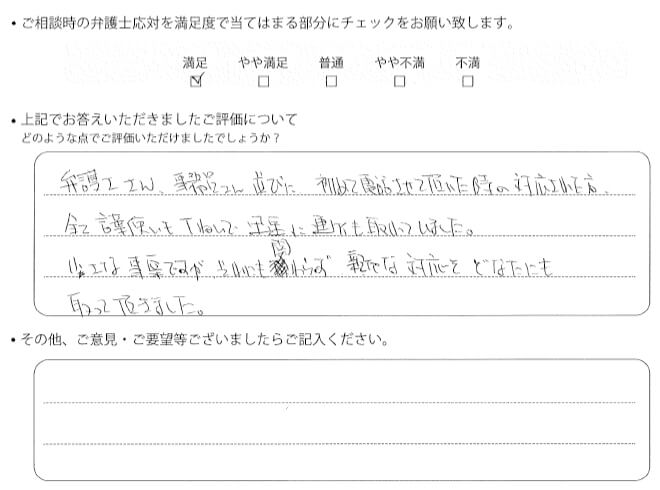 • ご相談時の弁護士応対を満足度で当てはまる部分にチェックをお願い致します。
満足 やや満足 普通 やや不満 不満
• 上記でお答えいただきましたご評価について
どのような点でご評価いただけましたでしょうか？
弁護士さん、事務員さん並びに 初めて電話させて頂いた時の対応された方、
全て言葉使いもていねいで 迅速に連絡も取れてしました。
な事案ですが それにも関わらず 親切な対応をどなたにも
取って頂きました。
• その他、ご意見・ご要望等ございましたらご記入ください。